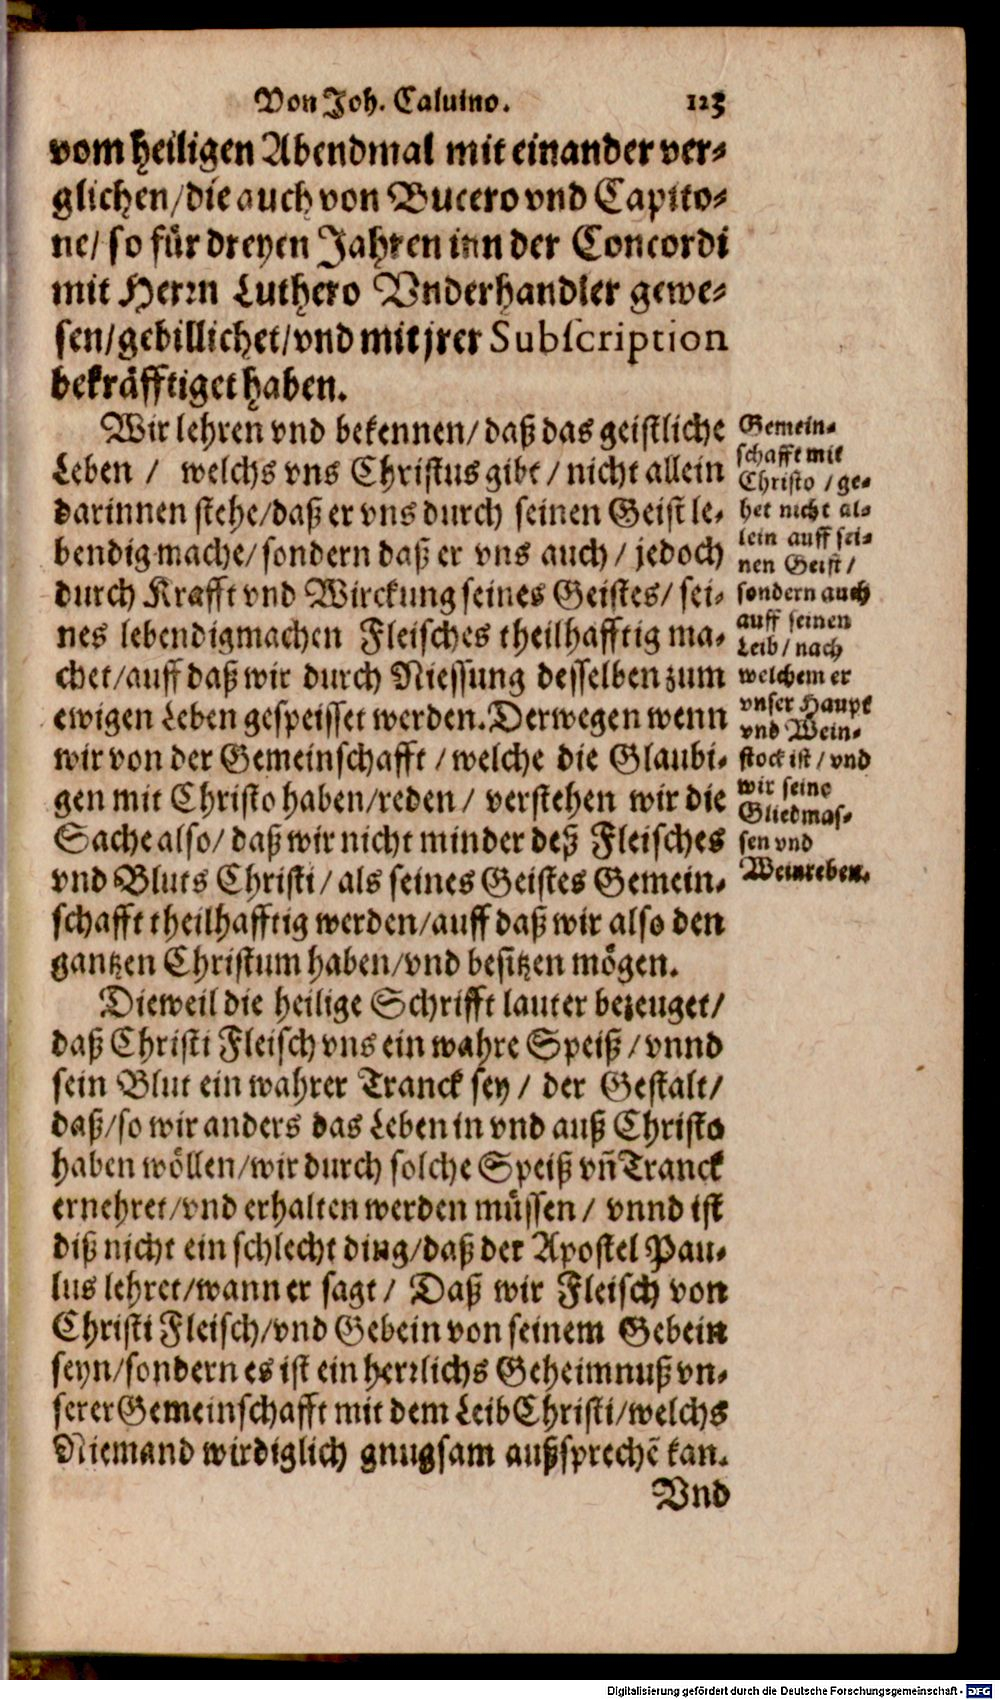 Von Joh. Caluino. 123
vom heiligen Abendmal mit einander ver-
glichen/die auch von Bucero vnd Capito-
ne/ so für dreyen Jahren inn der Concordi
mit Herrn Luthero Vnderhandler gewe-
sen/gebillichet/vnd mit jrer Subscription
bekräfftiget haben.
Wir lehren vnd bekennen/ daß das geistliche
Leben / welchs vns Christus gibt / nicht allein
darinnen stehe/daß er vns durch seinen Geist le-
bendig mache/ sondern daß er vns auch / jedoch
durch Krafft vnd Wirckung seines Geistes/ sei-
nes lebendigmachen Fleisches theilhafftig ma-
chet/auff daß wir durch Niessung desselben zum
ewigen Leben gespeisset werden. Derwegen wenn
wir von der Gemeinschafft / welche die Glaubi-
gen mit Christo haben/reden / verstehen wir die
Sache also/ daß wir nicht minder deß Fleisches
vnd Bluts Christi / als seines Geistes Gemein-
schafft theilhafftig werden/auff daß wir also den
gantzen Christum haben/vnd besitzen mögen.
Gemein-
schafft mit
Christo / ge-
het nicht al-
lein auff sei-
nen Geist /
sondern auch
auff seinen
Leib / nach
welchem er
vnser Haupt
vnd Wein-
stock ist / vnd
wir seine
Gliedmas-
sen vnd
Weinreben.
Dieweil die heilige Schrifft lauter bezeuget/
daß Christi Fleisch vns ein wahre Speiß / vnnd
sein Blut ein wahrer Tranck sey / der Gestalt/
daß/so wir anders das Leben in vnd auß Christo
haben wöllen/wir durch solche Speiß vñ Tranck
ernehret/vnd erhalten werden müssen / vnnd ist
diß nicht ein schlecht ding/daß der Apostel Pau-
lus lehret/wann er sagt / Daß wir Fleisch von
Christi Fleisch/vnd Gebein von seinem Gebein
seyn/sondern es ist ein herrlichs Geheimnuß vn-
serer Gemeinschafft mit dem Leib Christi/welchs
Niemand wirdiglich gnugsam außsprechẽ kan.
Vnd
Digitalisierung gefördert durch die Deutsche Forschungsgemeinschaft - DFG